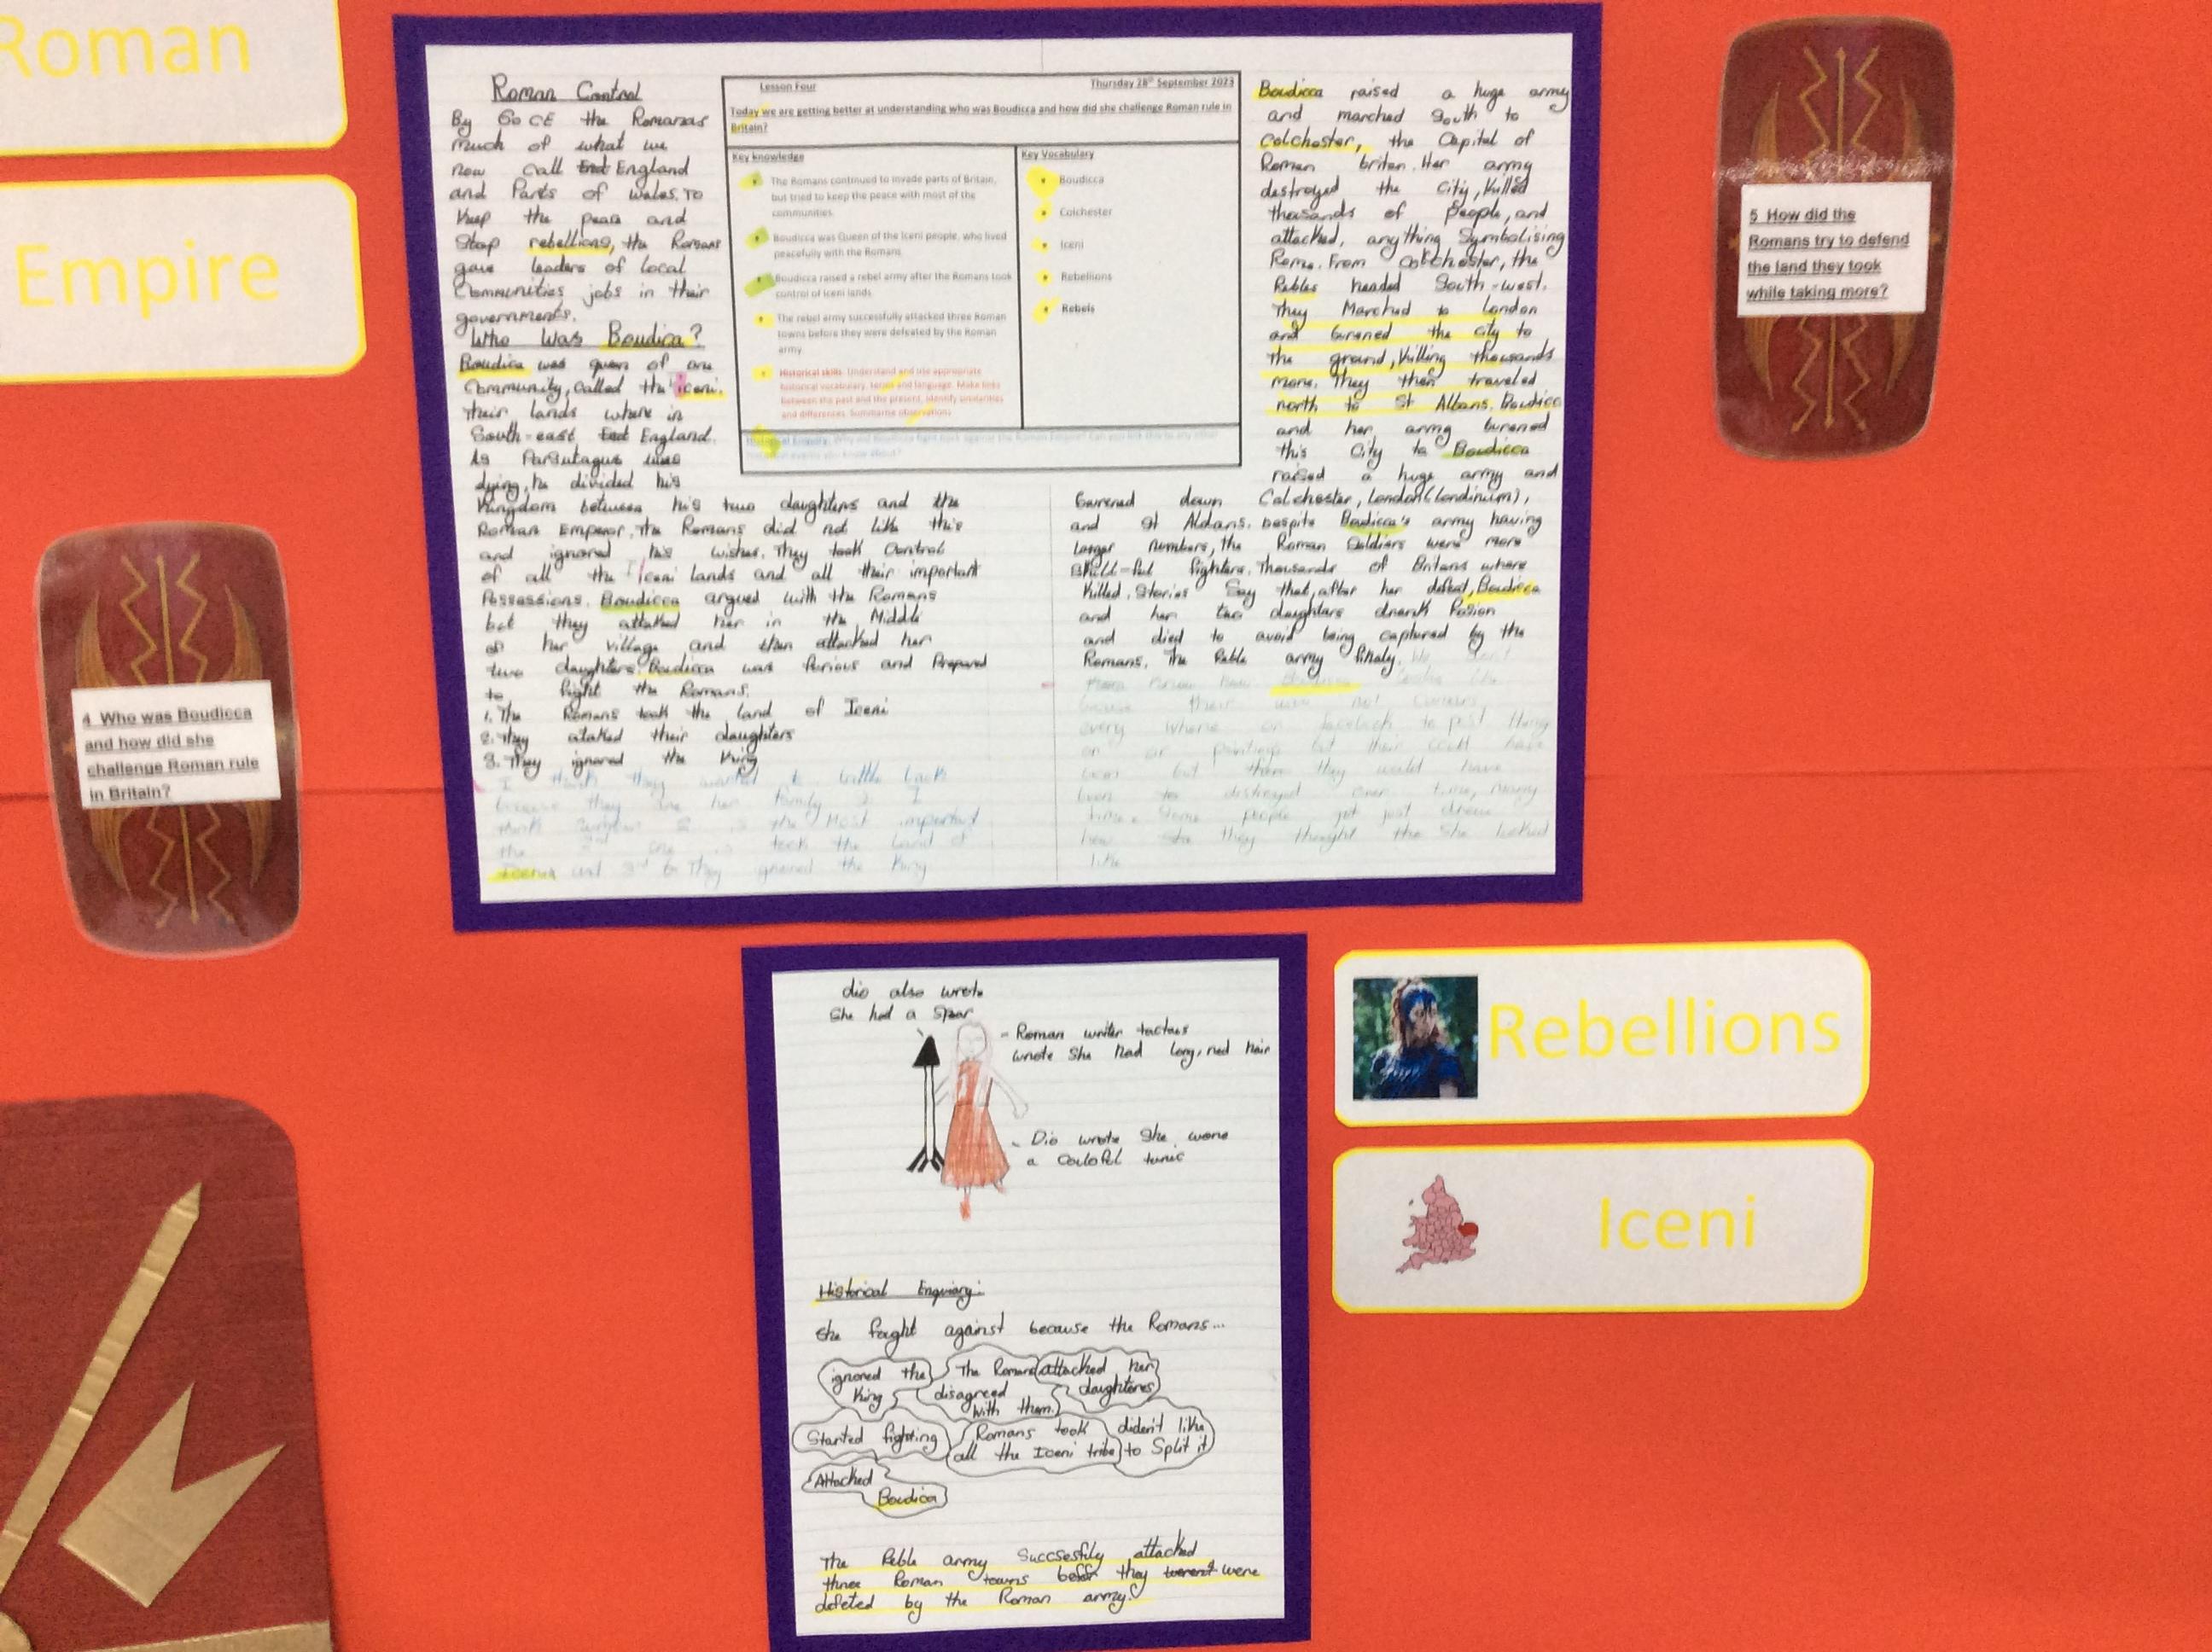 Roman
Empire
4 Who was Boudicca
and how did she
challenge Roman rule
in Britain?
Roman Control
By 60 CE the Romanas
much of what we
now call England
and Parts of Wales. To
Keep the peace and
Stop rebellions, the Romans
gave leaders of local
Communities jobs in their
governments.
Who Was Boudica?
Boudica was quen of one
Community, called the iceni.
Their lands where in
South-east England.
As Parsutagus was
dying, he divided his
Kingdom between his two daughters and the
Roman Emperor. The Romans did not like this
and ignored his wishes. They took control
of all the Iceni lands and all their important
Possessions. Boudicca argued with the Romans
but they attaked her in the Middle
of her village and then attacked her
two daughters. Boudicca was furious and Prepared
to fight the Romans.
1. The Romans took the land of Iceni
2. They ataked their daughters
3. They ignored the King
I think they wanted to battle back
because they are her family I
think number 2 is the Most important
the 2nd one is took the land of
and 3rd They ignored the King
Lesson Four
Thursday 28th September 2023
Today we are getting better at understanding who was Boudicca and how did she challenge Roman rule in
Britain?
Key knowledge
The Romans continued to invade parts of Britain,
but tried to keep the peace with most of the
communities.
Boudicca was Queen of the Iceni people, who lived
peacefully with the Romans.
Boudicca raised a rebel army after the Romans took
control of Iceni lands.
The rebel army successfully attacked three Roman
towns before they were defeated by the Roman
army.
Historical skills: Understand and use appropriate
historical vocabulary, terms and language. Make links
between the past and the present, identify similarities
and differences. Summarise observations.
Key Vocabulary
Boudicca
Colchester
Iceni
Rebellions
Rebels
Enquiry: Why did Boudicca fight back against the Roman Empire? Can you link this to any other
Boudicca raised a huge army
and marched South to
Colchester, the Capital of
Roman briten. Her army
destroyed the city, killed
thousands of people, and
attacked, anything Symbolising
Rome. From Colchester, the
Rebles headed South-west.
They Marched to London
and burened the city to
the ground, killing thousands
more. They then traveled
north to St Albans. Boudicca
and her army burened
this City to Boudicca
raised a huge army and
burened down Colchester, London (londinium),
and St Aldans. Despite Boudicca's army having
larger numbers, the Roman Soldiers were more
skill-ful fighters. Thousands of Britans where
Killed. Stories Say that, after her defeat, Boudicca
and her two daughters drank Posion
and died to avoid being captured by the
Romans. The Reble army finaly. We don't
know how Boudicca looks like
their was not cameras
every where or facebook to post things
on or paintings but their could have
been but them they would have
been to destroyed over time, many
time. Some people got just drew
how they thought the she looked
like
5 How did the
Romans try to defend
the land they took
while taking more?
dio also wrote
She had a spear
- Roman writer tactius
wrote she had long, red hair
- Dio wrote she wore
a couloful tunic
Historical Enquiary:
She foght against because the Romans...
ignored the King
The Romans disagreed with them.
attacked her daughteres
Started fighting
Romans took all the Iceni tribe
dident like to Split it
Attacked Boudica
The Reble army Succsesfily attacked
three Roman towns befor they were
defeted by the Roman army.
Rebellions
Iceni